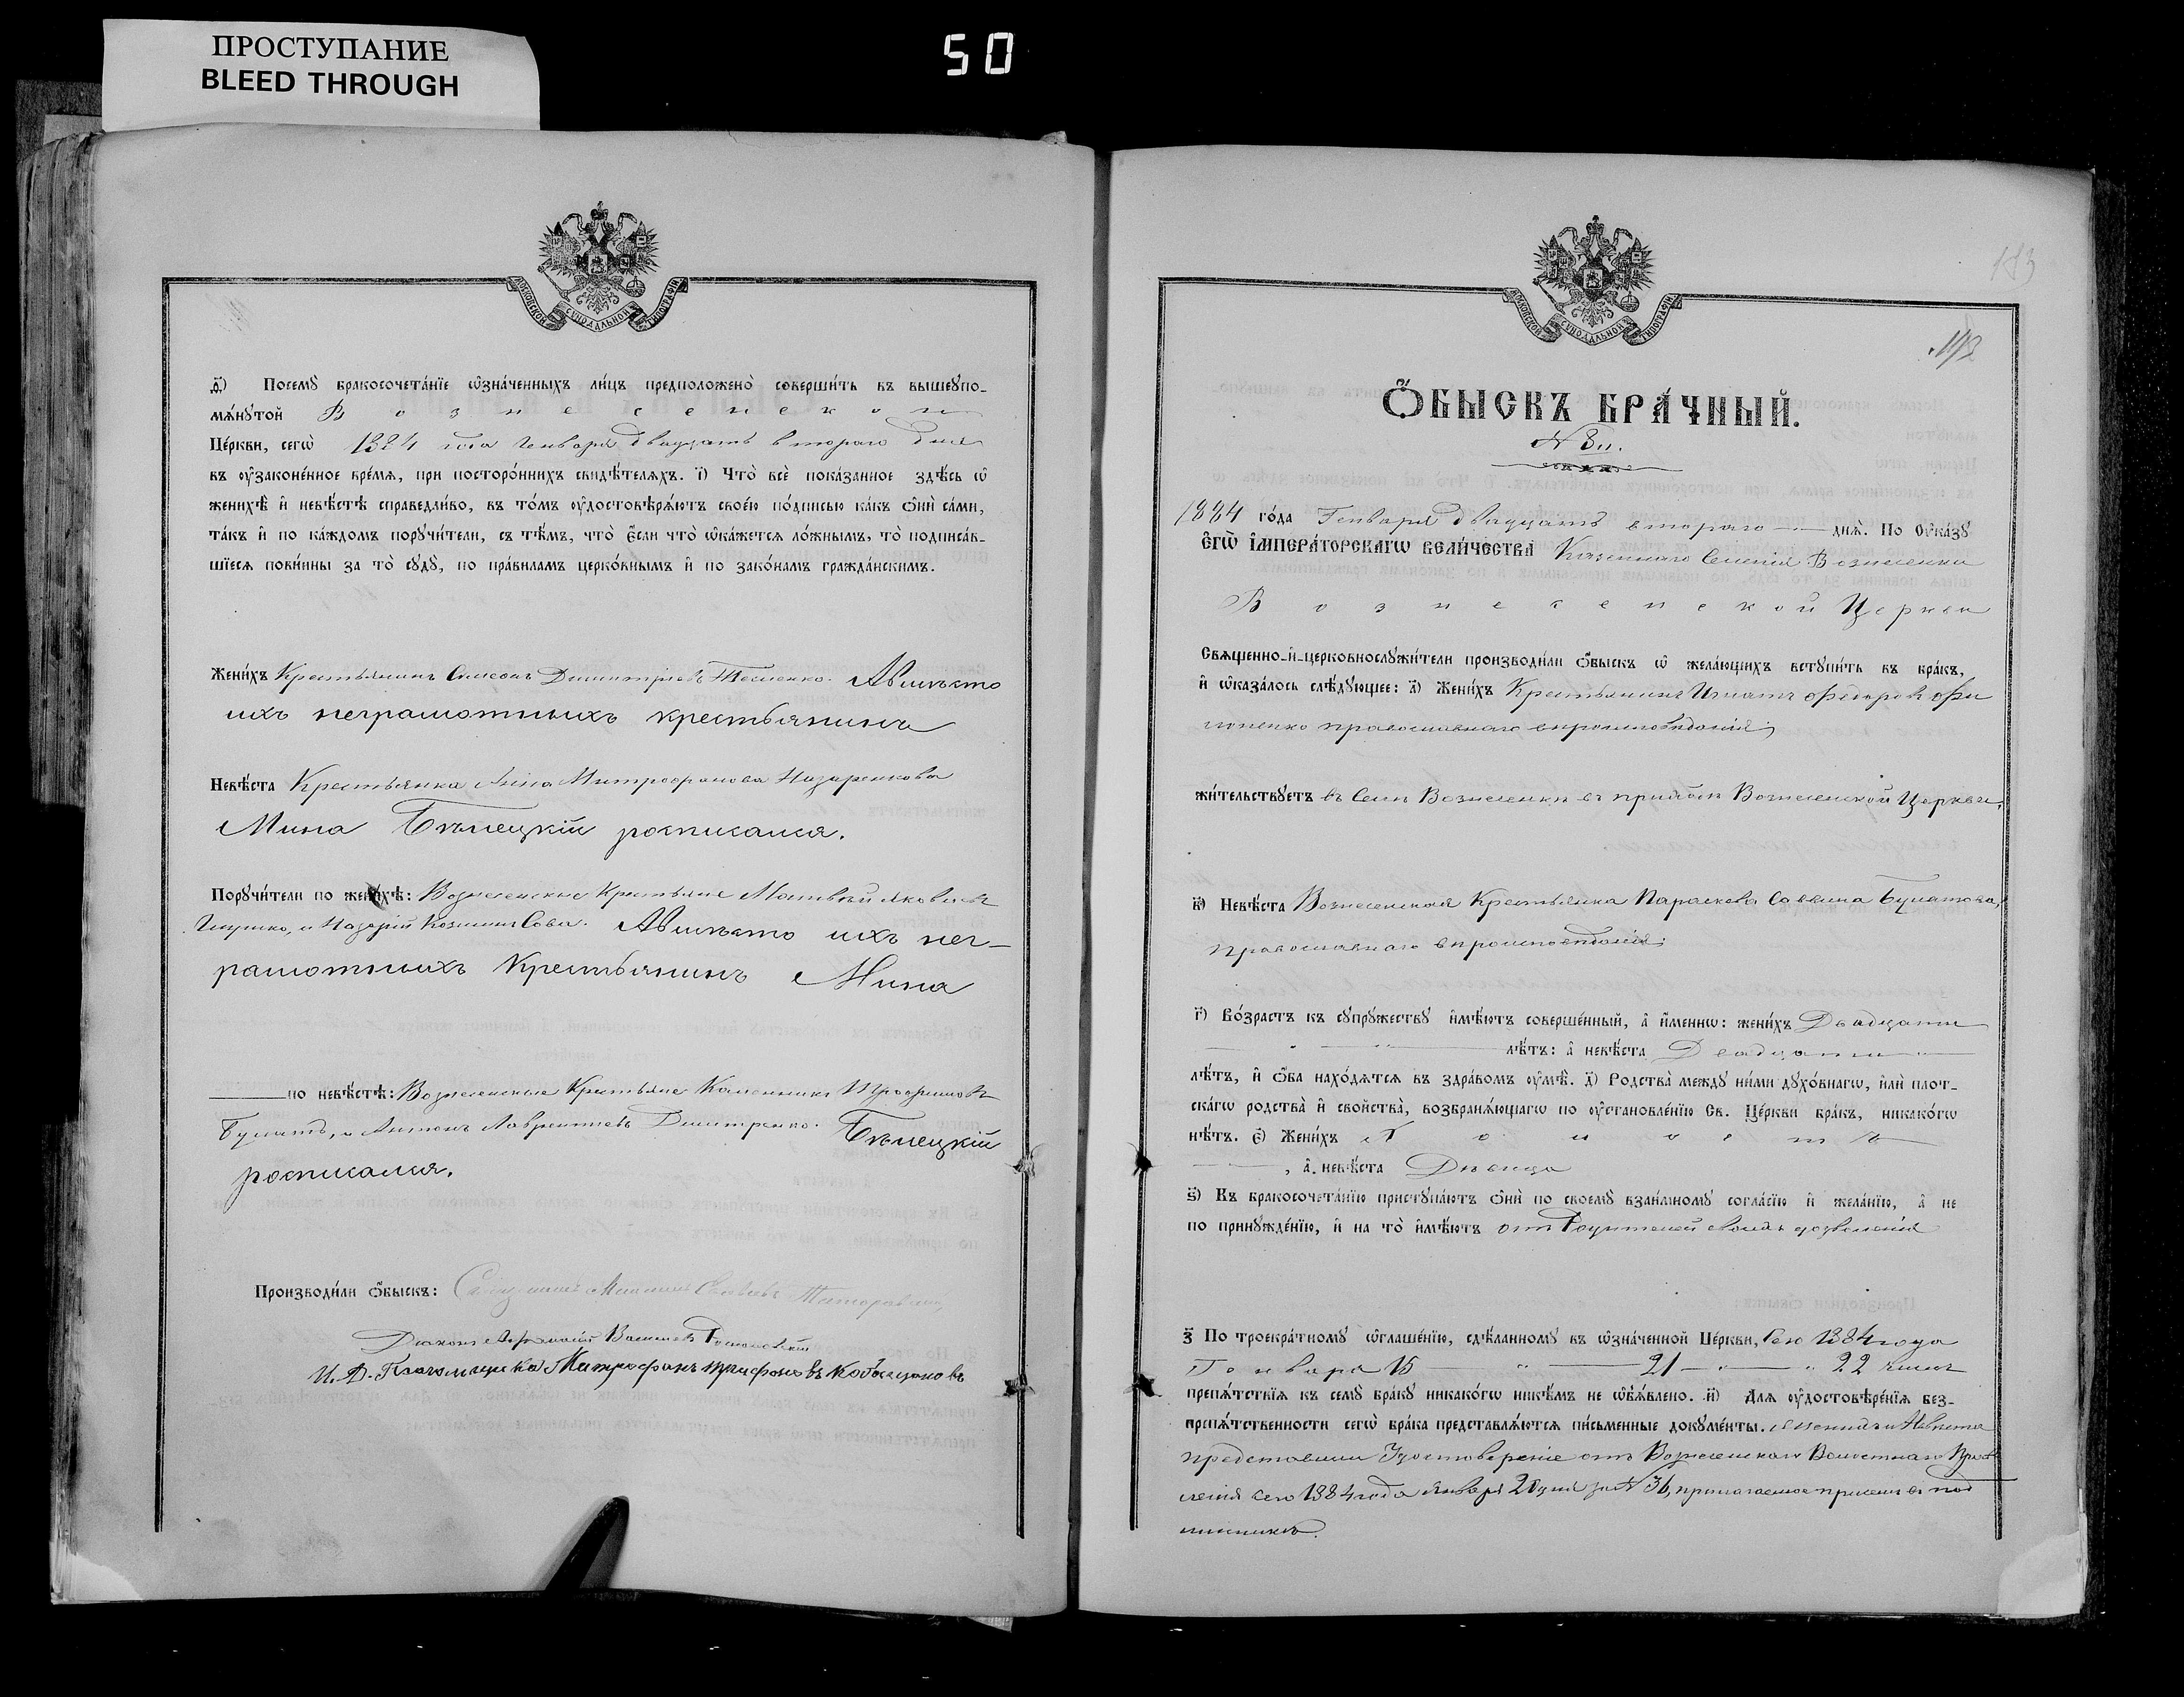 ПРОСТУПАНИЕ
BLEED THROUGH
50
МОСКОВСКОЙ СѴНОДАЛЬНОЙ ТИПОГРАФІИ
д҃) Посемꙋ бракосочета́нїе ѡ҆зна́ченныхъ ли́цъ предположено̀ соверши́ть въ вышеꙋпо-
мѧ́нꙋтой Вознесенской
Це́ркви, сегѡ̀ 1884 года Генваря двадцать втораго дня
въ ᲂу҆законе́нное вре́мѧ, при посторо́ннихъ свидѣ́телѧхъ. і҃) Что̀ всѐ пока́занное здѣ́сь ѡ҆
женихѣ̀ и҆ невѣ́стѣ справедли́во, въ то́мъ ᲂу҆достовѣрѧ́ютъ свое́ю по́дписью ка́къ ѻ҆нѝ са́ми,
та́къ и҆ по ка́ждомъ порꙋчи́тели, съ тѣ́мъ, что̀ є҆́сли что̀ ѡ҆ка́жетсѧ ло́жнымъ, то̀ подписа́в-
шїесѧ пови́нны за то̀ сꙋдꙋ̀, по пра́виламъ церко́внымъ и҆ по зако́намъ гражда́нскимъ.
Жени́хъ Крестьянинъ Симеонъ Димитріевъ Тесленко. Авмѣсто
ихъ неграмотныхъ крестьянинъ
Невѣ́ста Крестьянка Анна Митрофанова Назаренкова
Мина Бѣлецкій росписался.
Порꙋчи́тели по женихѣ̀: Вознесенские Крестьяне Матвѣй Яковлевъ
и Назарій Козминъ Сова. Авмѣсто ихъ нег-
рамотныхъ Крестьянинъ Мина
по невѣ́стѣ: Вознесенские Крестьяне Трофимовъ
Булатъ, и Антонъ Лаврентіевъ Дмитренко. Бѣлецкій
росписался.
Производи́ли ѻ҆́быскъ: Священникъ
Діаконъ Васильевъ
И. Д. Псаломщика Митрофанъ Трифоновъ
183
ѺБЫСКЪ БРА́ЧНЫЙ.
№ 8й.
1884 го́да Генваря двадцать втораго днѧ̀. По Оу҆ка́зꙋ
Є҆гѡ̀ І҆мпера́торскагѡ Вели́чества Казеннаго Селенія Вознесенки
Вознесенской Церкви
Свѧще́нно-и҆-церковнослꙋжи́тели производи́ли ѻ҆́быскъ ѡ҆ жела́ющихъ встꙋпи́ть въ бра́къ,
и҆ ѡ҆каза́лось слѣ́дꙋющее: а҃) Жени́хъ Крестьянинъ Игнатъ Фи
лоненко православнаго вѣроисповѣданія,
жи́тельствꙋетъ въ Селѣ Вознесенки въ приходѣ Вознесенской Церкви,
в҃) Невѣ́ста Вознесенская Крестьянка Параскева Саввина Булатова,
православнаго вѣроисповѣданія;
г҃) Во́зрастъ къ сꙋпрꙋ́жествꙋ и҆мѣ́ютъ соверше́нный, а҆ и҆́меннѡ: жени́хъ Двадцати
лѣ́тъ: а҆ невѣ́ста Двадцати
лѣ́тъ, и҆ ѻ҆́ба нахо́дѧтсѧ въ здра́вомъ ᲂу҆мѣ̀. д҃) Родства̀ междꙋ ни́ми дꙋхо́внагѡ, и҆лѝ плот-
ска́гѡ родства̀ и҆ свойства̀, возбранѧ́ющагѡ по ᲂу҆становле́нїю Св. Це́ркви бра́къ, никако́гѡ
нѣ́тъ. є҃) Жени́хъ Холостъ
, а҆ невѣ́ста Дѣвица
ѕ҃) Къ бракосочета́нїю пристꙋпа́ютъ ѻ҆нѝ по своемꙋ̀ взаи́мномꙋ согла́сїю и҆ жела́нїю, а҆ не
по принꙋжде́нїю, и҆ на то̀ и҆мѣ́ютъ отъ Родителей своихъ дозволенія
з҃ По троекра́тномꙋ ѡ҆глаше́нїю, сдѣ́ланномꙋ въ ѡ҆зна́ченной Це́ркви, Сего 1884 года
Генваря 15 " 21 " 22 чиселъ
препѧ́тствїѧ къ семꙋ̀ бра́кꙋ никако́гѡ никѣ́мъ не ѡ҆б̾ѧ́влено. и҃) Длѧ ᲂу҆достовѣре́нїѧ без-
препѧ́тственности сегѡ̀ бра́ка представлѧ́ютсѧ пи́сьменные докꙋме́нты. Женихъ и Невѣста
представили Удостоверѣніе отъ Вознесенскаго Волостнаго Прав
ленія сего 1884 года Января за № 36, прилагаемое при семъ въ под
линникѣ.